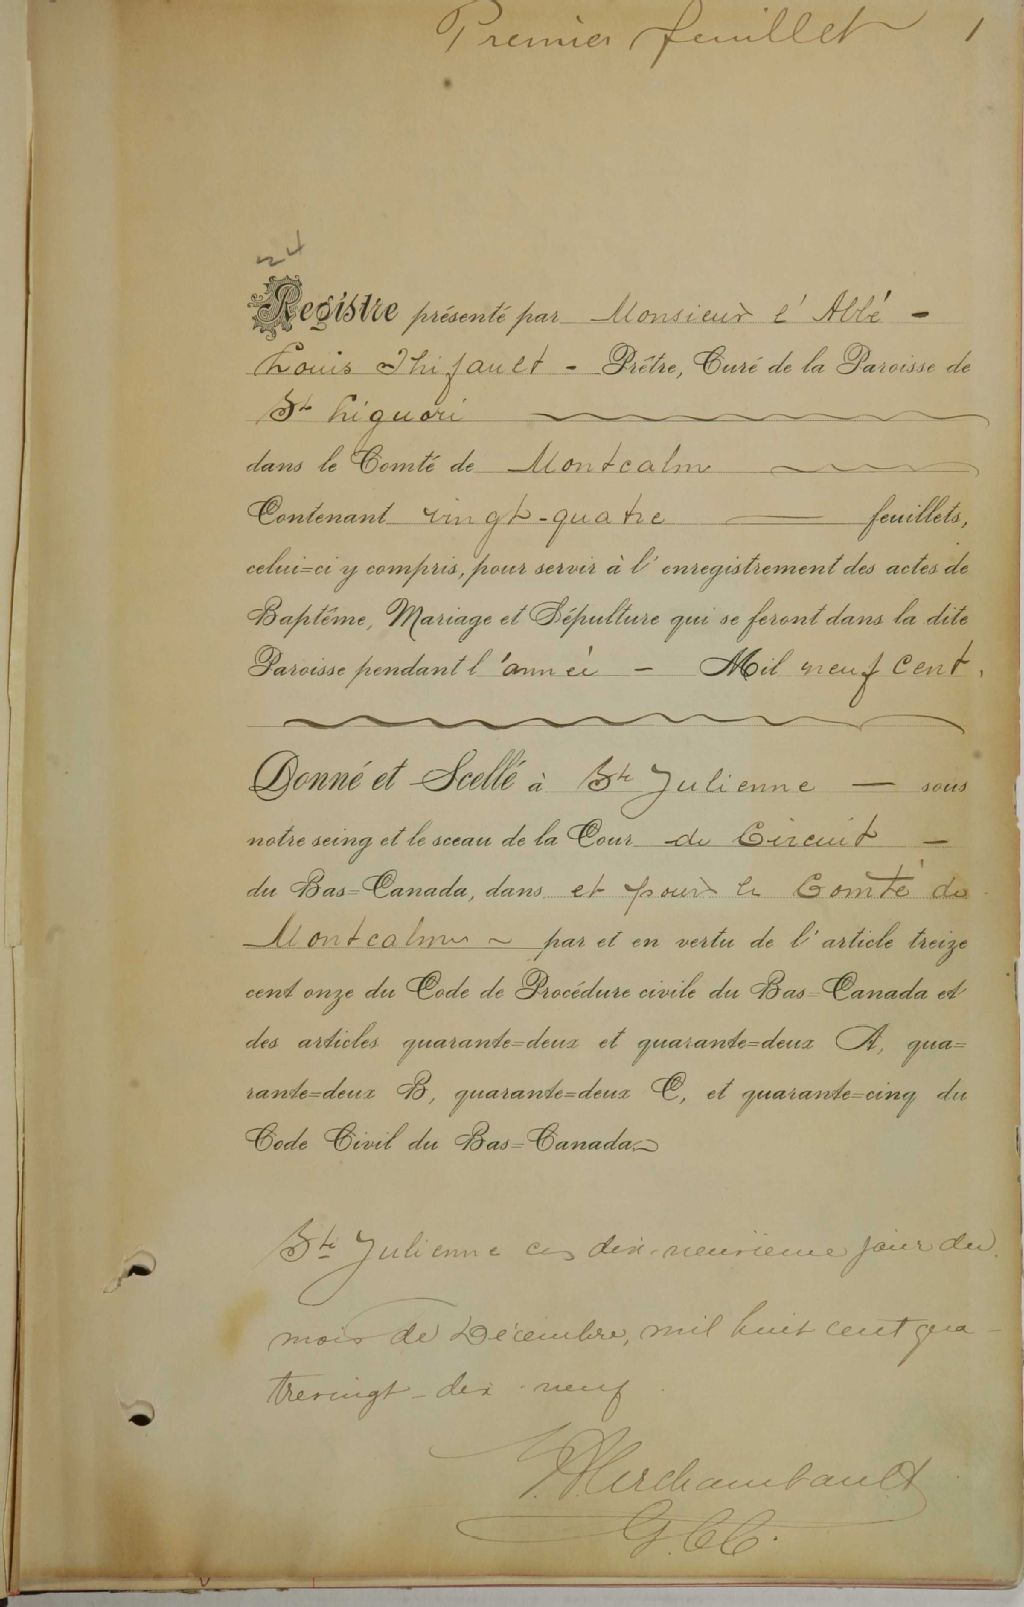 Premier feuillet 1
24
Registre présenté par Monsieur l'Abbé -
Louis Thifault - Prêtre, Curé de la Paroisse de
St Liguori
dans le Comté de Montcalm
Contenant vingt-quatre feuillets,
celui=ci y compris, pour servir à l'enregistrement des actes de
Baptême, Mariage et Sépulture qui se feront dans la dite
Paroisse pendant l'année - Mil neuf cent.
Donné et Scellé à Ste Julienne — sous
notre seing et le sceau de la Cour de Circuit -
du Bas=Canada, dans et pour le Comté de
Montcalm - par et en vertu de l'article treize
cent onze du Code de Procédure civile du Bas=Canada et
des articles quarante=deux et quarante=deux A, qua=
rante=deux B, quarante=deux C, et quarante=cinq du
Code Civil du Bas=Canada.
Ste Julienne ce dix-neuvieme jour du
mois de Décembre, mil huit cent qua-
trevingt-dix-neuf.
Archambault
G.C.C.